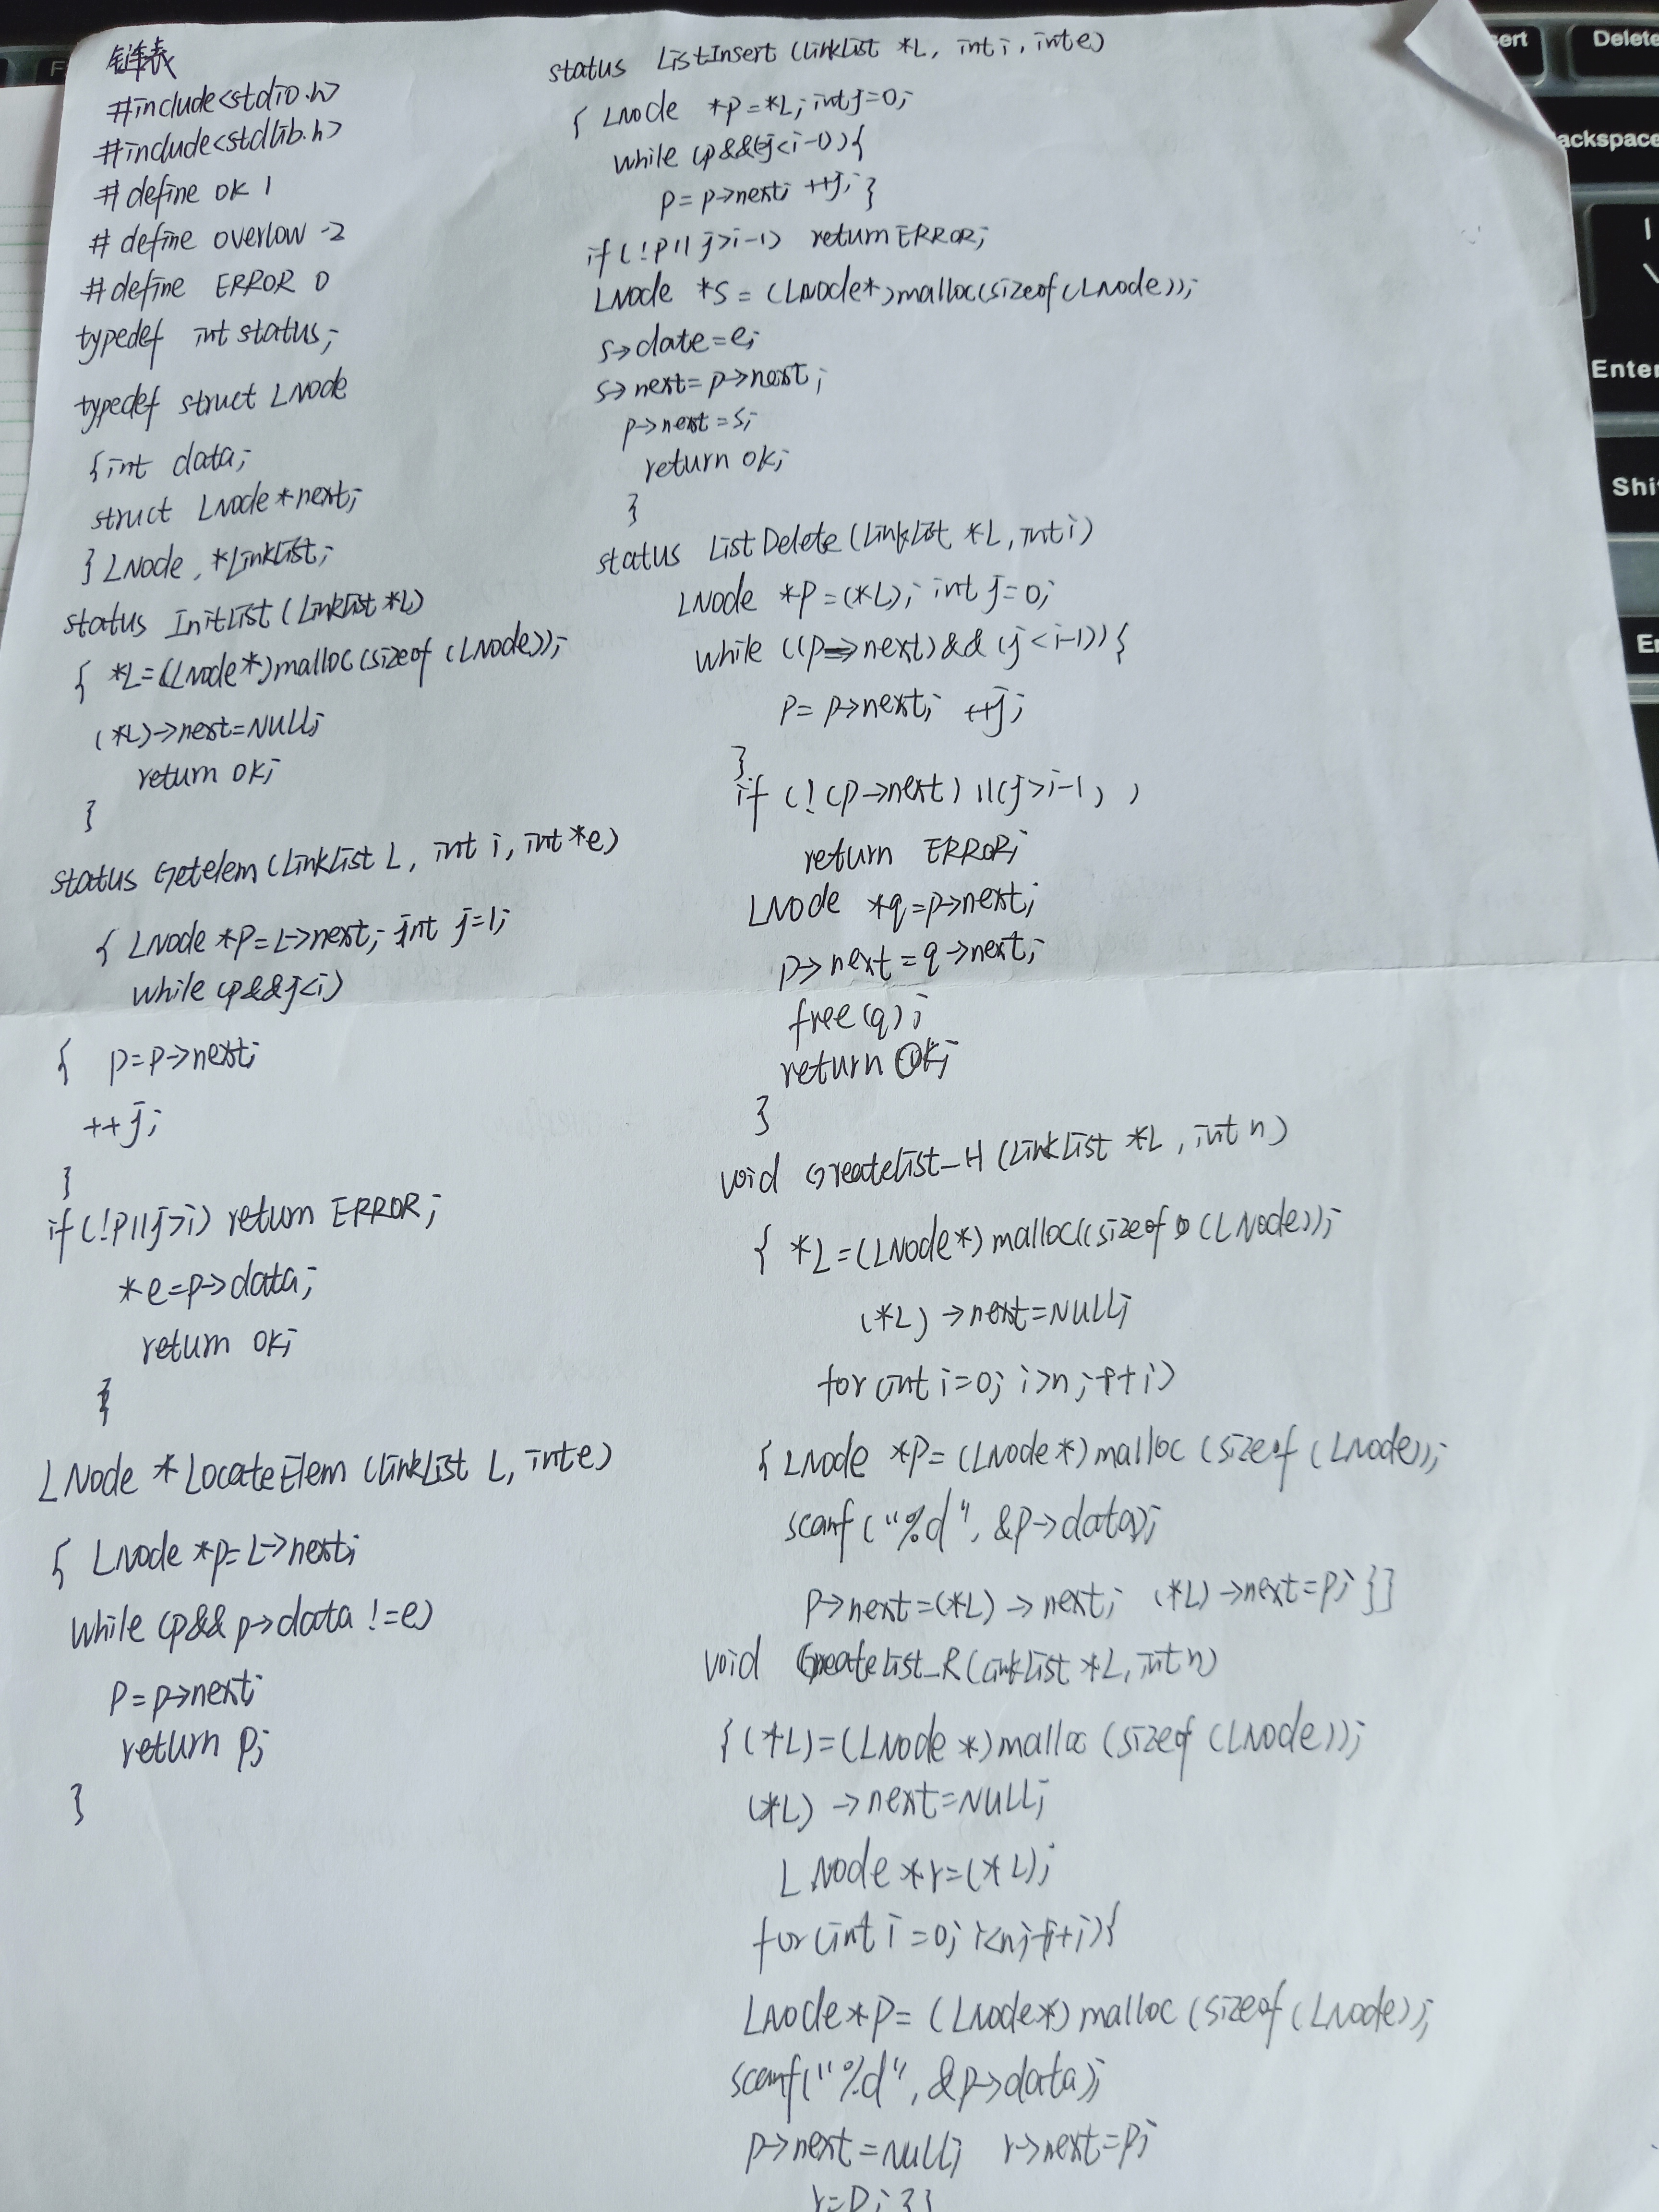 链表
#include<stdio.h>
#include<stdlib.h>
#define ok 1
#define overlow -2
#define ERROR 0
typedef int status;
typedef struct LNode
{int data;
struct LNode *next;
}LNode, *LinkList;
status InitList(LinkList *L)
{ *L=(LNode*)malloc(sizeof(LNode));
(*L)->next=NULL;
return ok;
}
status Getelem(LinkList L, int i, int *e)
{ LNode *p=L->next; int j=1;
while(p&&j<i)
{ p=p->next;
++j;
}
if(!p||j>i) return ERROR;
*e=p->data;
return ok;
}
LNode *LocateElem(LinkList L, int e)
{ LNode *p=L->next;
while(p&&p->data!=e)
p=p->next;
return p;
}
status ListInsert(LinkList *L, int i, int e)
{ LNode *p=*L; int j=0;
while(p&&(j<i-1)){
p=p->next; ++j; }
if(!p||j>i-1) return ERROR;
LNode *s=(LNode*)malloc(sizeof(LNode));
s->date=e;
s->next=p->next;
p->next=s;
return ok;
}
status ListDelete(LinkList *L, int i)
LNode *p=(*L); int j=0;
while((p->next)&&(j<i-1)){
p=p->next; ++j;
}
if(!(p->next)||(j>i-1))
return ERROR;
LNode *q=p->next;
p->next=q->next;
free(q);
return ok;
}
void Createlist_H(LinkList *L, int n)
{ *L=(LNode*)malloc((sizeof(LNode));
(*L)->next=NULL;
for(int i=0; i>n; ++i)
{ LNode *p=(LNode*)malloc(sizeof(LNode));
scanf("%d", &p->data);
p->next=(*L)->next; (*L)->next=p; }}
void Createlist_R(LinkList *L, int n)
{(*L)=(LNode*)malloc(sizeof(LNode));
(*L)->next=NULL;
LNode *r=(*L);
for(int i=0; i<n; ++i){
LNode *p=(LNode*)malloc(sizeof(LNode));
scanf("%d", &p->data);
p->next=NULL; r->next=p;
r=p; }}
Delete
Enter